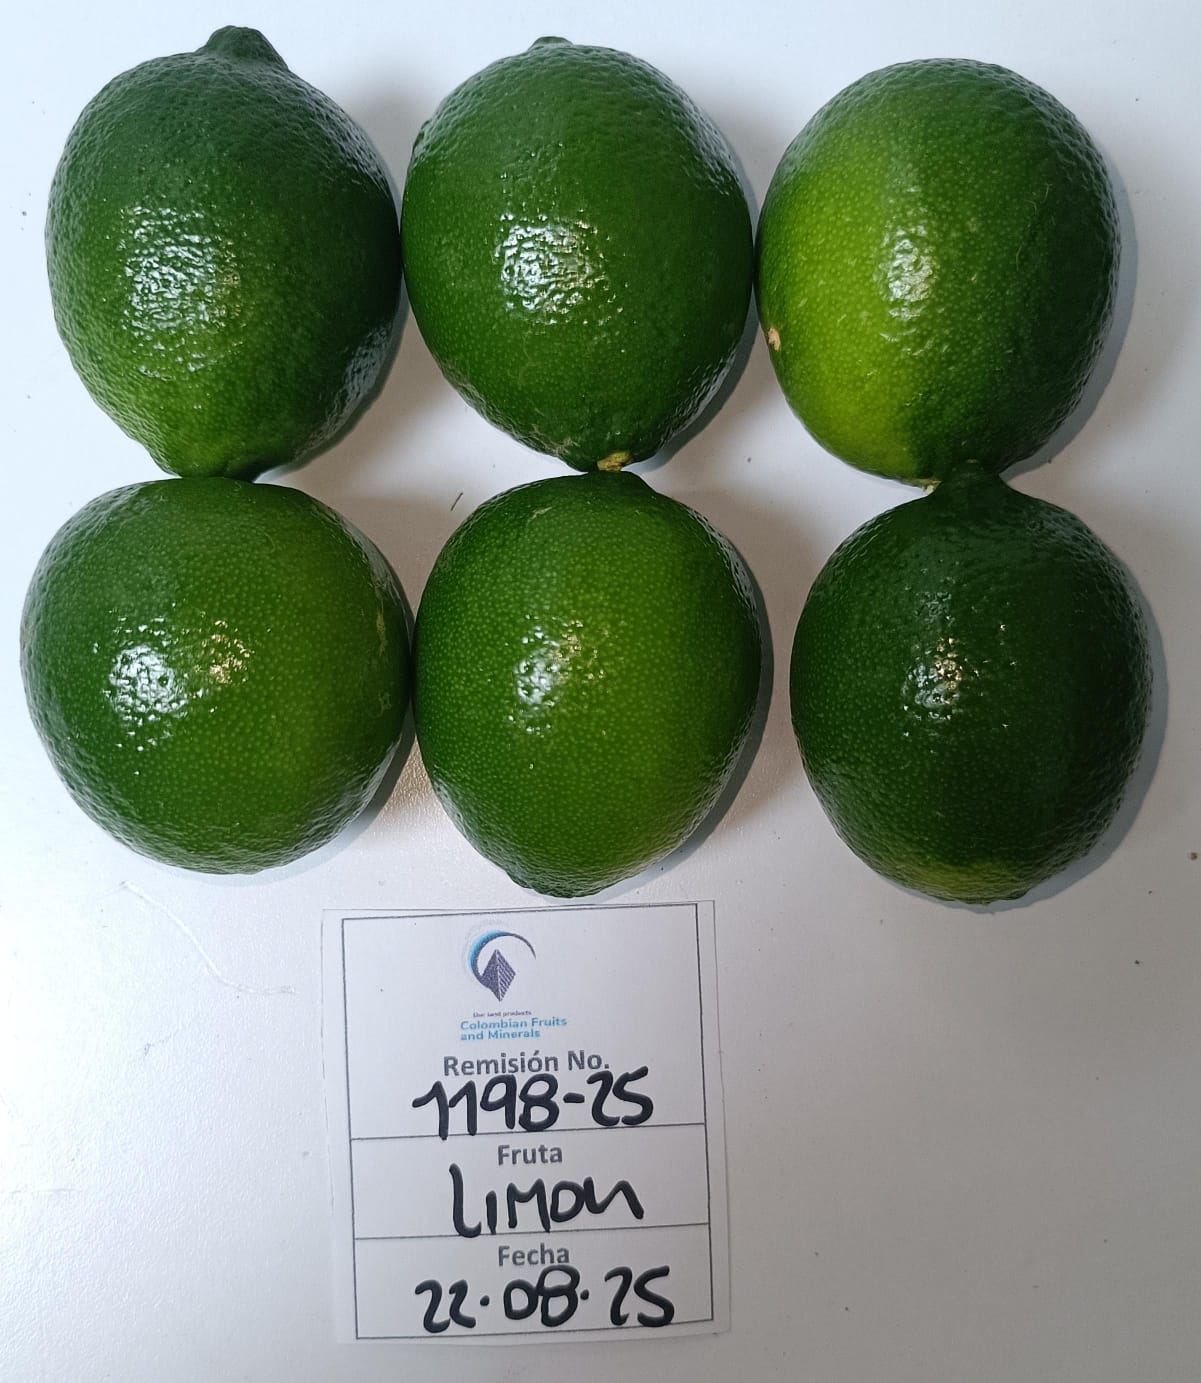 Our land products
Colombian Fruits
and Minerals
Remisión No.
1198-25
Fruta
LIMON
Fecha
22.08.25